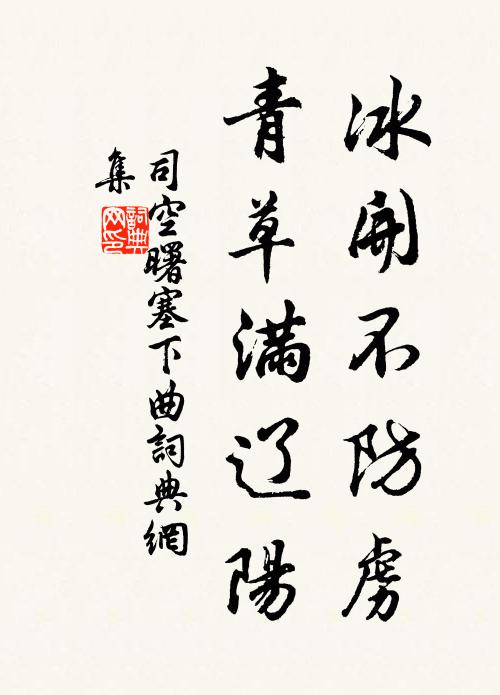 冰開不防虜
青草滿辽陽
司空曙塞下曲詞典網
集
詞典
网印